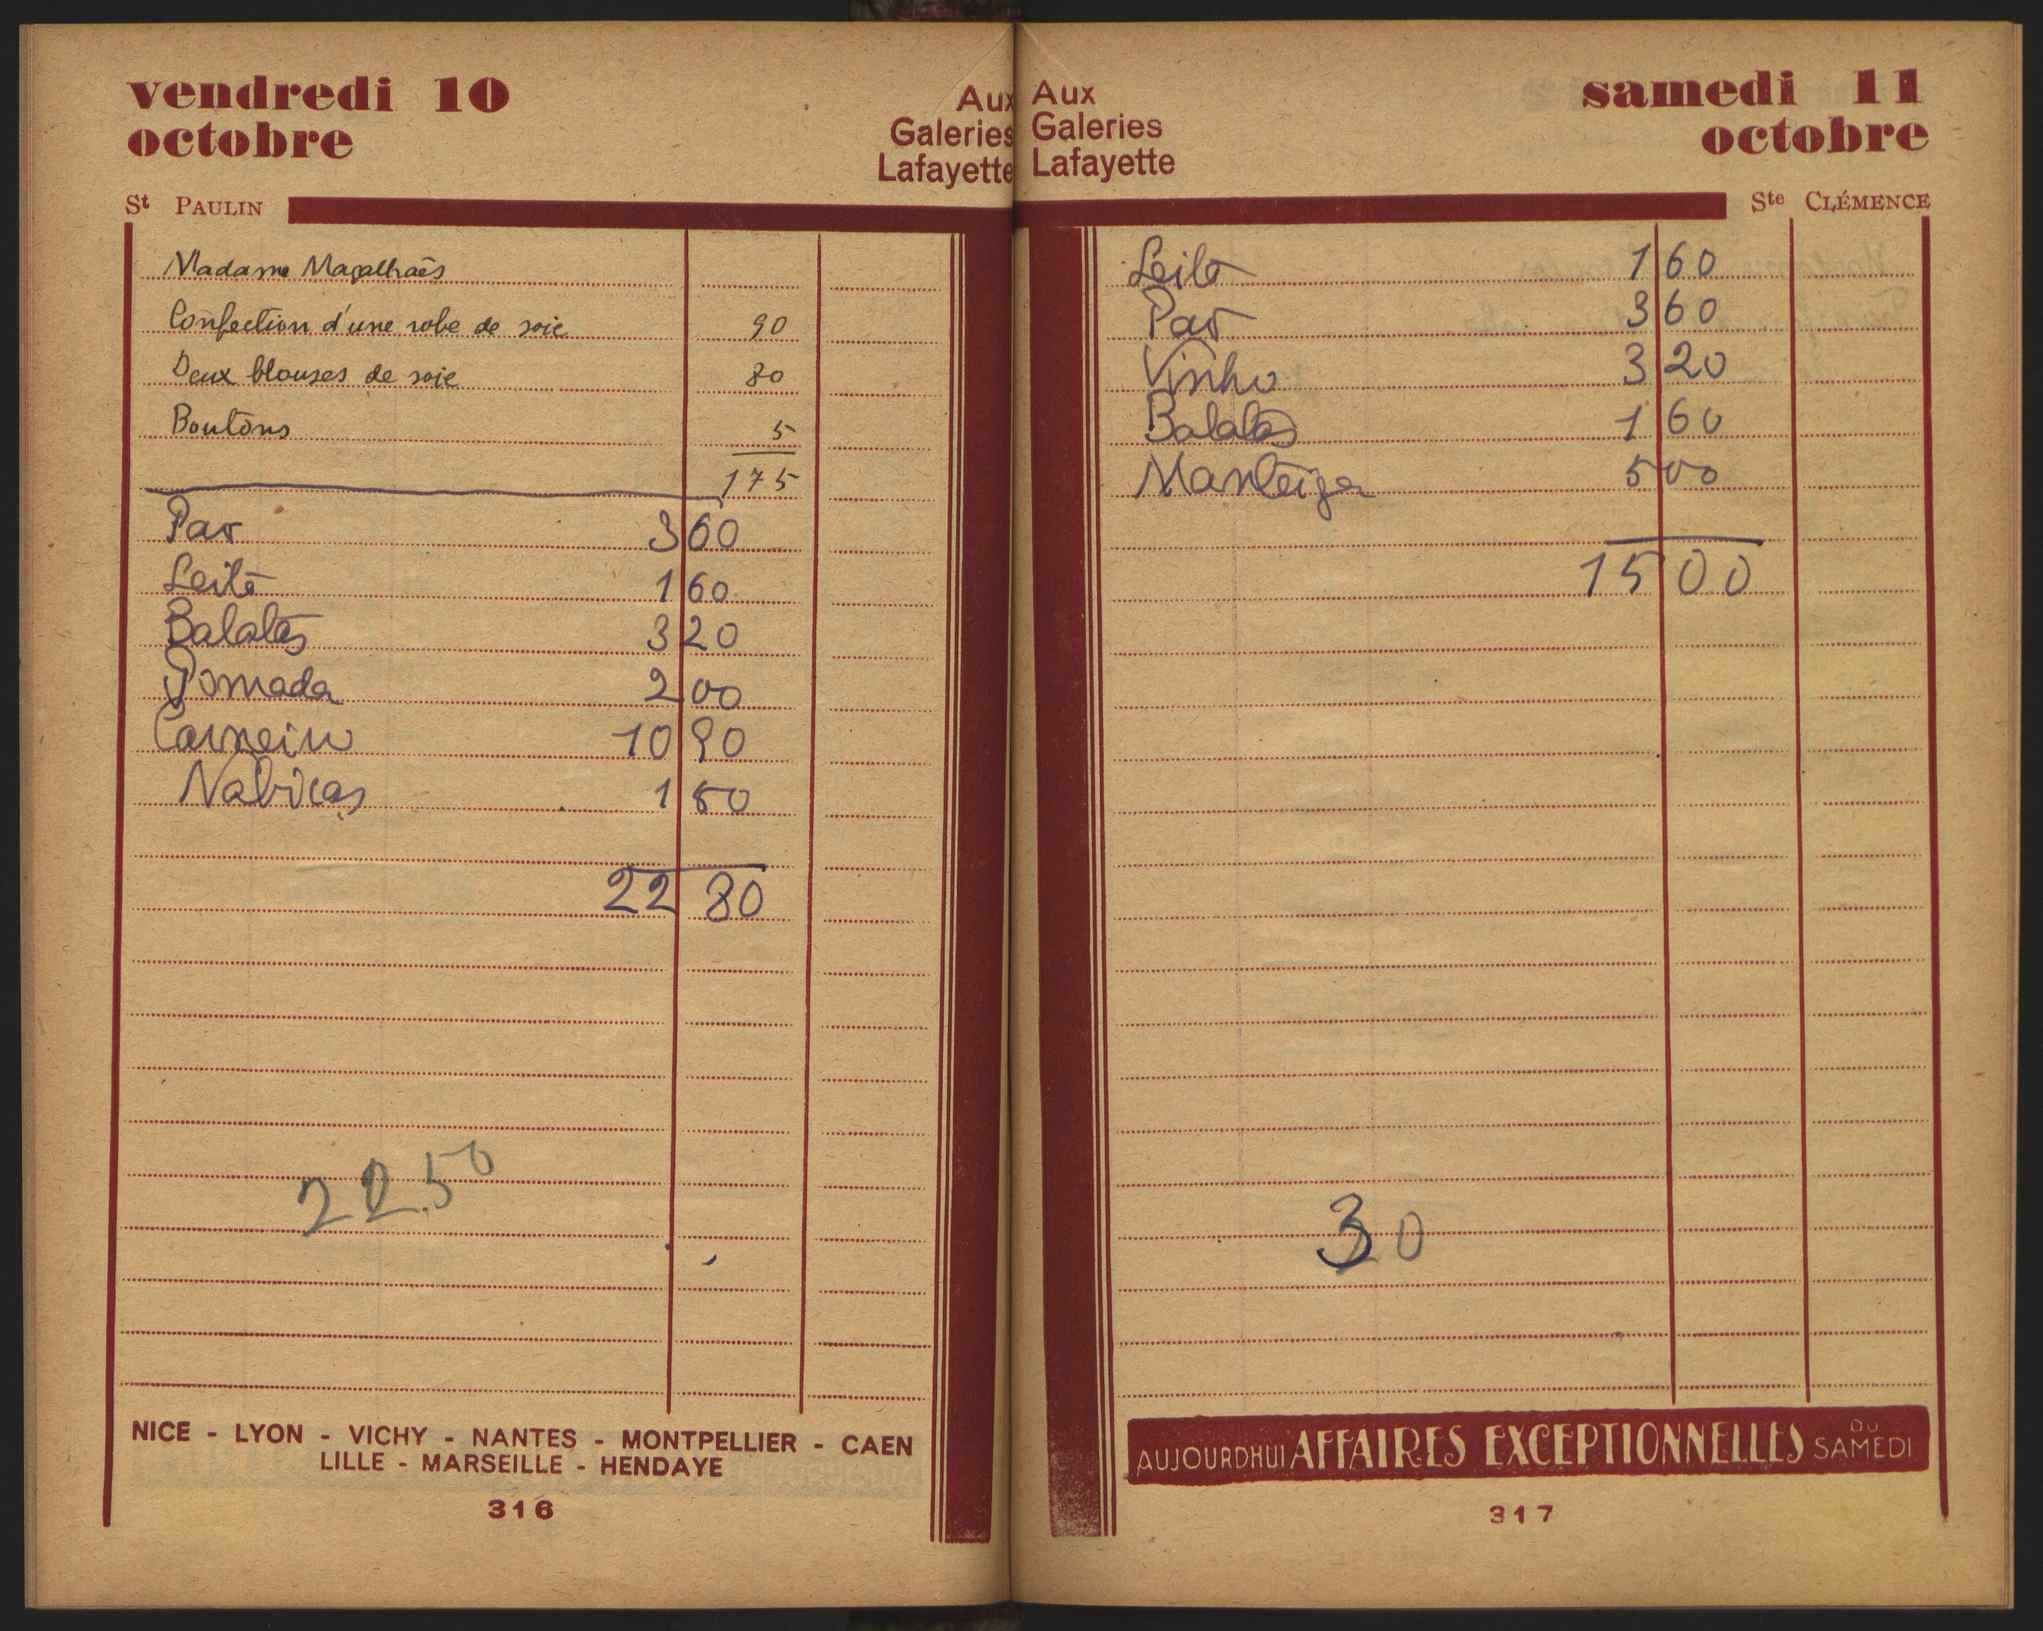 vendredi 10
octobre
Aux
Galeries
Lafayette
St PAULIN
Madame Magalhaës
Confection d'une robe de soie 90
Deux blouses de soie 80
Boutons 5
175
Pao 3 60
Leite 1 60
Batatas 3 20
Pomada 2 00
Carneiro 10 90
Nabiças 1 50
22 80
22.50
NICE - LYON - VICHY - NANTES - MONTPELLIER - CAEN
LILLE - MARSEILLE - HENDAYE
316
Aux
Galeries
Lafayette
samedi 11
octobre
Ste CLÉMENCE
Leite 1 60
Pao 3 60
Vinho 3 20
Batatas 1 60
Manteiga 5 00
15 00
30
AUJOURDHUI AFFAIRES EXCEPTIONNELLES DU SAMEDI
317